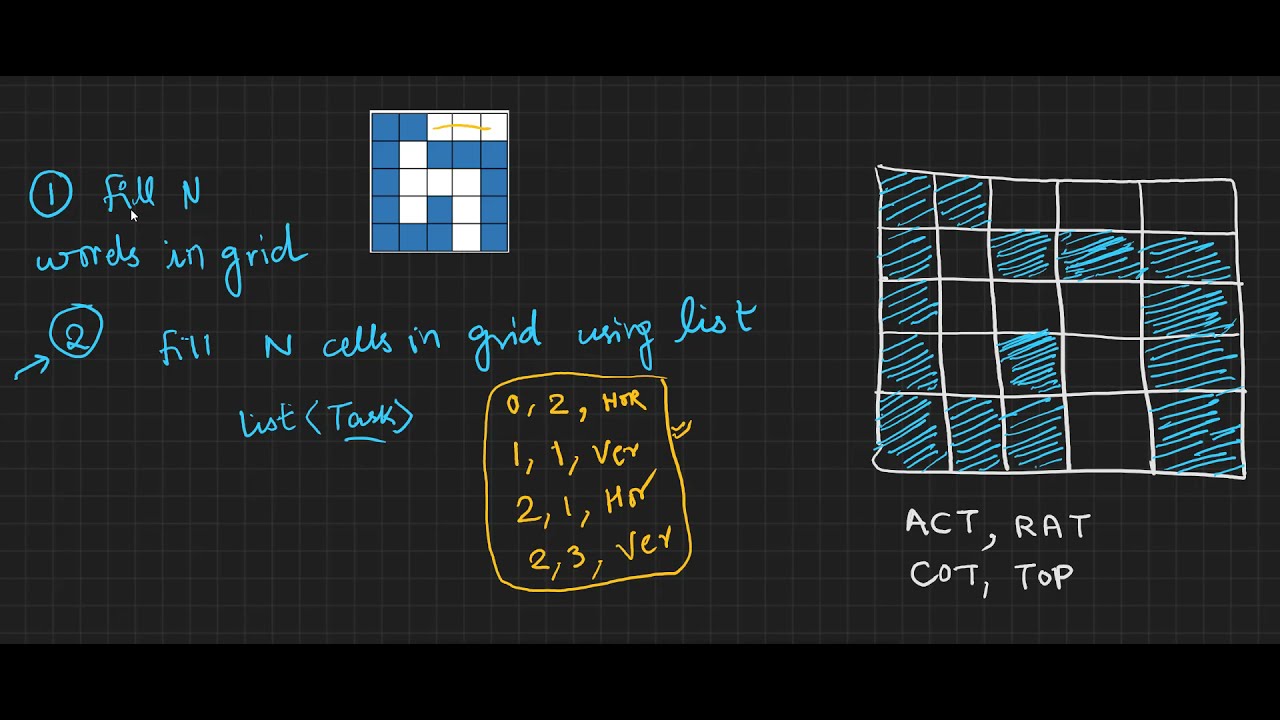 ① fill N
words in grid
② fill N cells in grid using list
list<Task>
0, 2, HOR
1, 1, Ver
2, 1, Hor
2, 3, Ver
ACT, RAT
COT, TOP